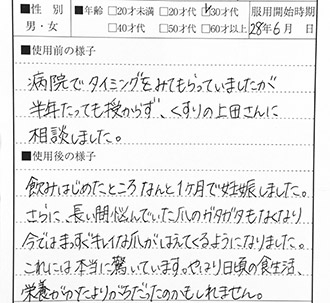 ■性別 ■年齢 □20才未満 □20才代 ☑30才代 服用開始時期
男・女 □40才代 □50才代 □60才以上 28年6月 日
■使用前の様子
病院でタイミングをみてもらっていましたが
半年たっても授からず、くすりの上田さんに
相談しました。
■使用後の様子
飲みはじめたところなんと1ヶ月で妊娠しました。
さらに、長い間悩んでいた爪のガタガタもなくなり
今ではまっすぐキレイな爪がはえてくるようになりました。
これには本当に驚いています。やはり日頃の食生活、
栄養がかたよりがちだったのかもしれません。